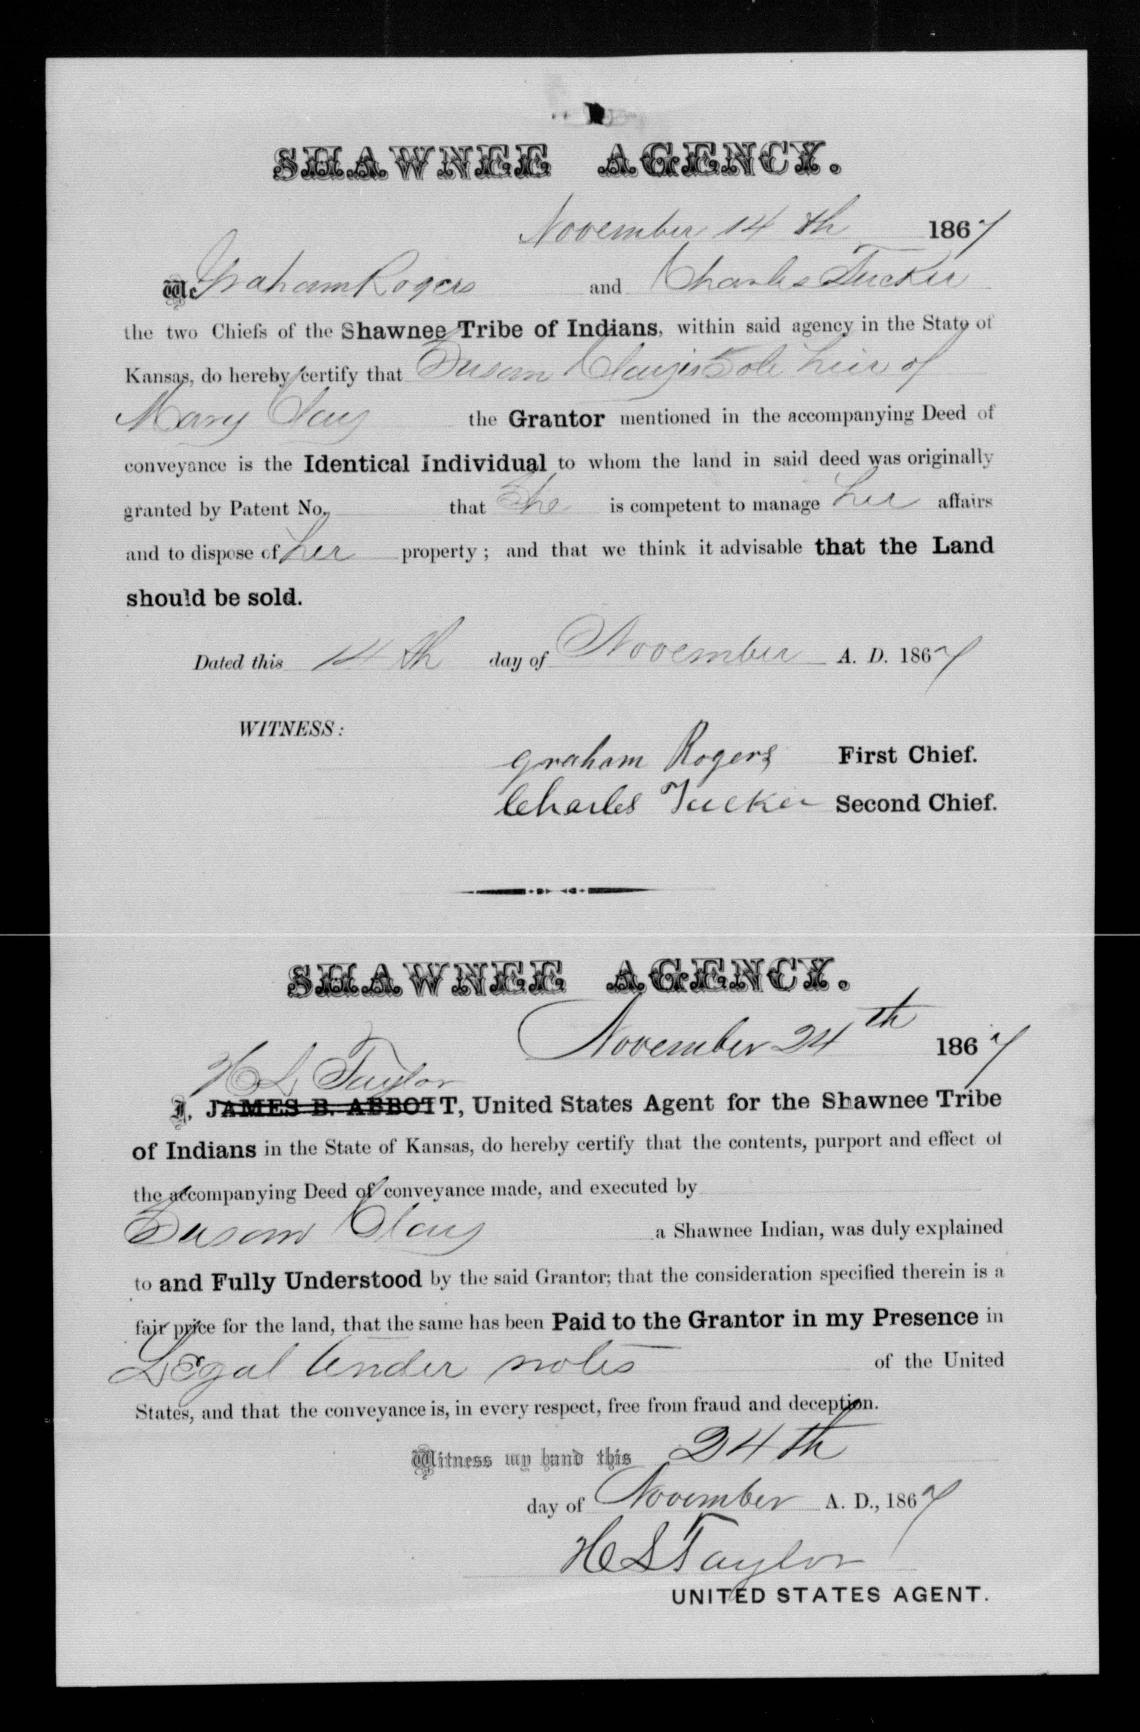 SHAWNEE AGENCY.
November 14th 1867
We Graham Rogers and Charles Tucker
the two Chiefs of the Shawnee Tribe of Indians, within said agency in the State of
Kansas, do hereby certify that Susan Clay is Sole heir of
Mary Clay the Grantor mentioned in the accompanying Deed of
conveyance is the Identical Individual to whom the land in said deed was originally
granted by Patent No. that She is competent to manage her affairs
and to dispose of her property; and that we think it advisable that the Land
should be sold.
Dated this 14th day of November A. D. 1867
WITNESS:
Graham Rogers First Chief.
Charles Tucker Second Chief.
SHAWNEE AGENCY.
November 24th 1867
Taylor
I, JAMES B. ABBOTT, United States Agent for the Shawnee Tribe
of Indians in the State of Kansas, do hereby certify that the contents, purport and effect of
the accompanying Deed of conveyance made, and executed by
Susan Clay a Shawnee Indian, was duly explained
to and Fully Understood by the said Grantor; that the consideration specified therein is a
fair price for the land, that the same has been Paid to the Grantor in my Presence in
Legal tender notes of the United
States, and that the conveyance is, in every respect, free from fraud and deception.
Witness my hand this 24th
day of November A. D., 1867
Taylor
UNITED STATES AGENT.